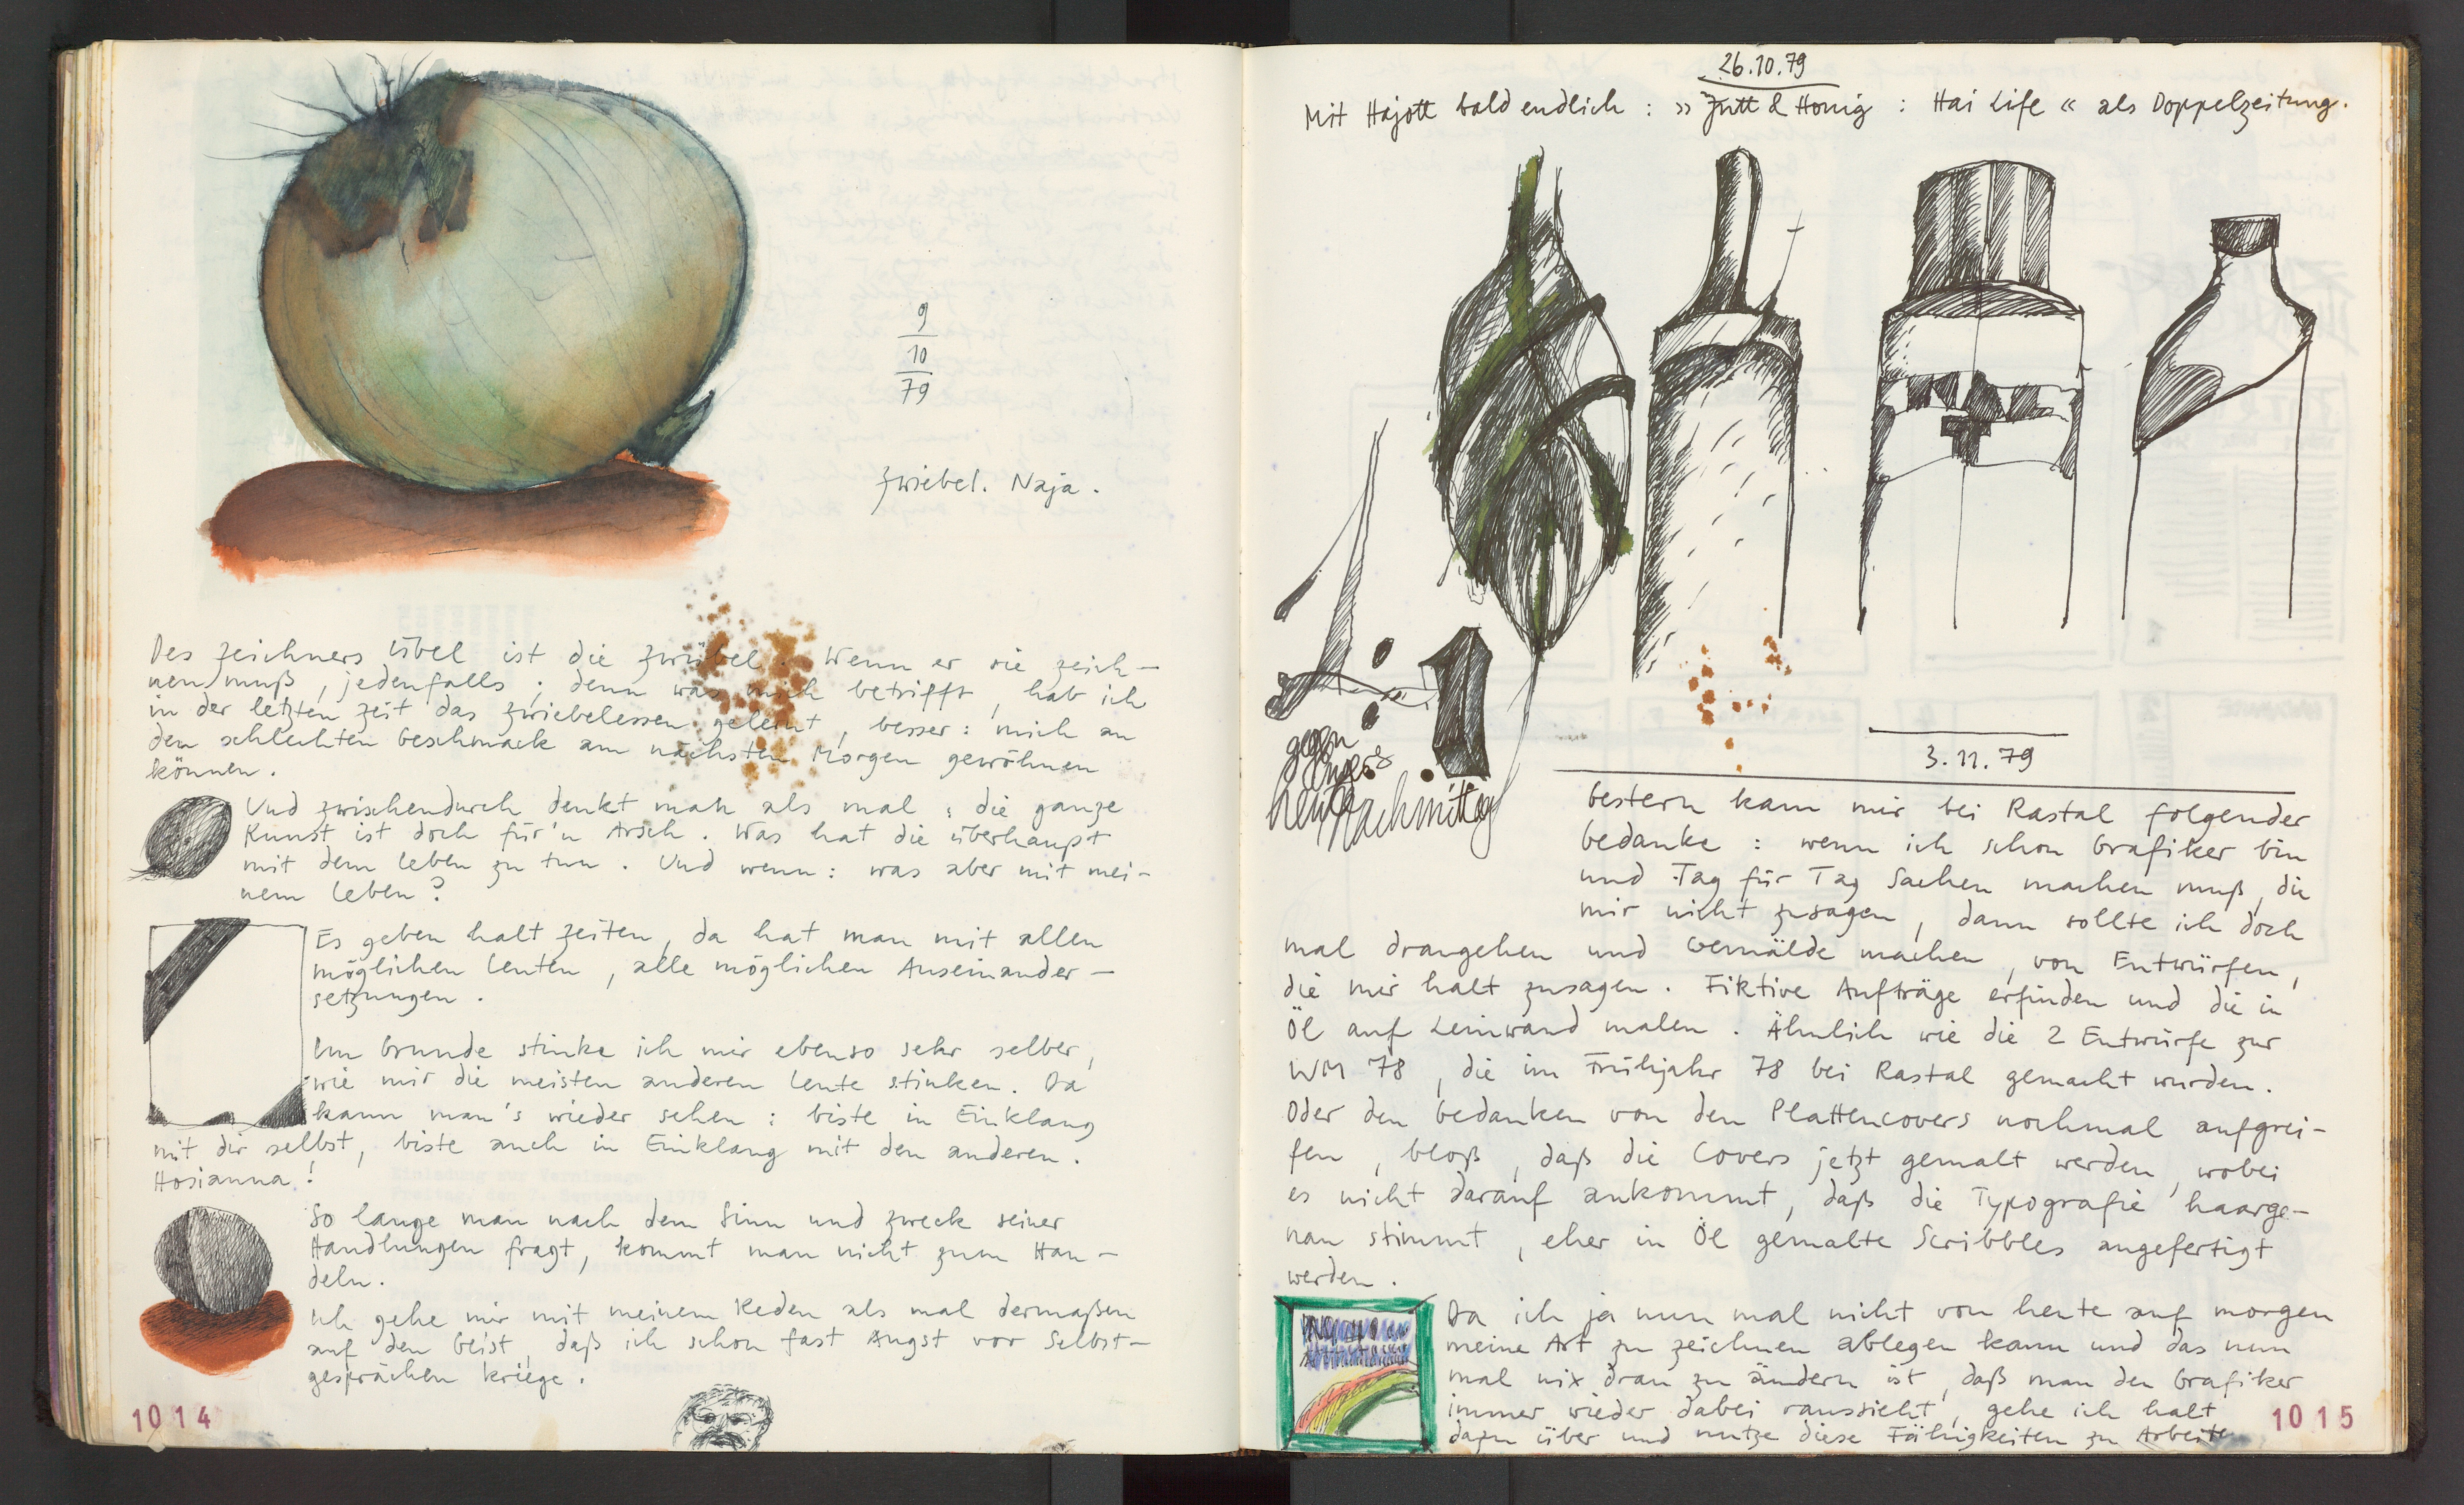 9
10
79
Zwiebel. Naja.
Des Zeichners Übel ist die Zwiebel. Wenn er sie zeich-
nen muß, jedenfalls; denn was mich betrifft, hab ich
in der letzten Zeit das Zwiebelessen gelernt, besser: mich an
den schlechten Geschmack am nächsten Morgen gewöhnen
können.
Und zwischendurch denkt man als mal: die ganze
Kunst ist doch für'n Arsch. Was hat die überhaupt
mit dem Leben zu tun. Und wenn: was aber mit mei-
nem Leben?
Es geben halt Zeiten, da hat man mit allen
möglichen Leuten, alle möglichen Auseinander-
setzungen.
Im Grunde stinke ich mir ebenso sehr selber,
wie mir die meisten anderen Leute stinken. Da
kann man's wieder sehen: biste in Einklang
mit dir selbst, biste auch in Einklang mit den anderen.
Hosianna!
So lange man nach dem Sinn und Zweck seiner
Handlungen fragt, kommt man nicht zum Han-
deln.
Ich gehe mir mit meinem Reden als mal dermaßen
auf den Geist, daß ich schon fast Angst vor Selbst-
gesprächen kriege.
1014
26.10.79
Mit Hajott bald endlich: »Jutt & Honig: Hai Life« als Doppelzeitung.
gegen
heute Nachmittag
3.11.79
Gestern kam mir bei Rastal folgender
Gedanke: wenn ich schon Grafiker bin
und Tag für Tag Sachen machen muß, die
mir nicht zusagen, dann sollte ich doch
mal drangehen und Gemälde machen, von Entwürfen,
die mir halt zusagen. Fiktive Aufträge erfinden und die in
Öl auf Leinwand malen. Ähnlich wie die 2 Entwürfe zur
WM 78, die im Frühjahr 78 bei Rastal gemacht wurden.
Oder den Gedanken von den Plattencovers nochmal aufgrei-
fen, bloß, daß die Covers jetzt gemalt werden, wobei
es nicht darauf ankommt, daß die Typografie haarge-
nau stimmt, eher in Öl gemalte Scribbles angefertigt
werden.
Da ich ja nun mal nicht von heute auf morgen
meine Art zu zeichnen ablegen kann und das nun
mal nix dran zu ändern ist, daß man den Grafiker
immer wieder dabei raussieht, gehe ich halt
dazu über und nutze diese Fähigkeiten zu Arbeite
1015